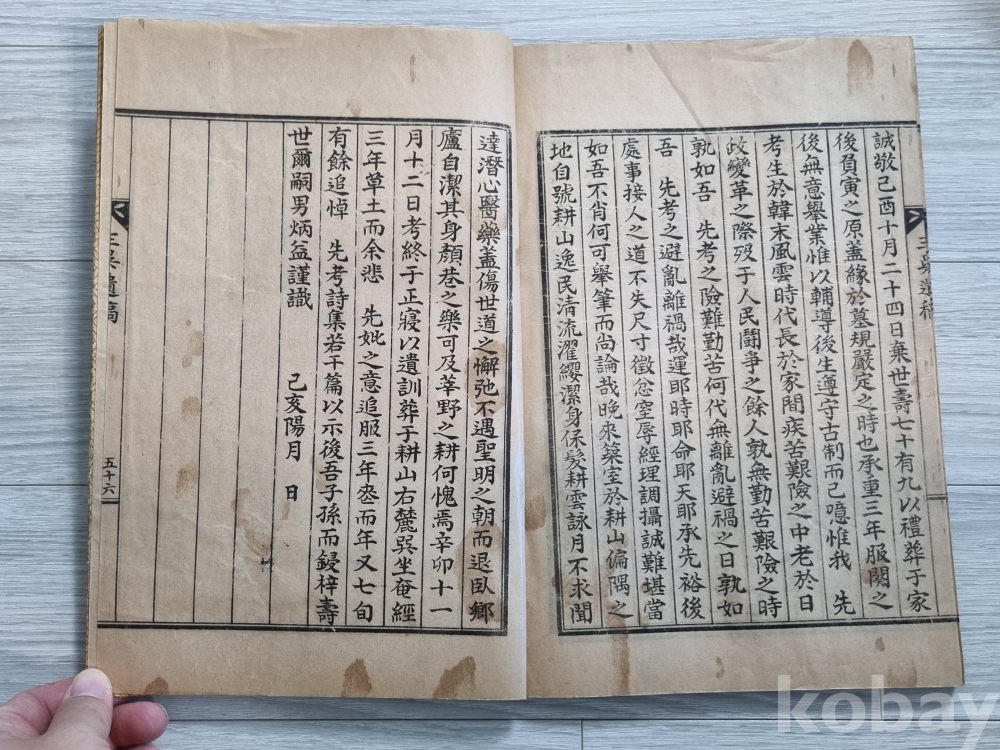 誠敬己酉十月二十四日棄世壽七十有九以禮葬于家
後負寅之原蓋緣於墓規嚴定之時也承重三年服闋之
後無意舉業惟以輔導後生遵守古制而已噫惟我　先
考生於韓末風雲時代長於家間疾苦艱險之中老於日
政變革之際歿于人民鬪爭之餘人孰無勤苦艱險之時
孰如吾　先考之險難勤苦何代無離亂避禍之日孰如
吾　先考之避亂離禍哉運耶時耶命耶天耶承先裕後
處事接人之道不失尺寸徵忿窒辱經理調攝誠難堪當
如吾不肖何可舉筆而尚論哉晚來築室於耕山偏隅之
地自號耕山逸民清流濯纓潔身保髮耕雲詠月不求聞
達潛心醫藥蓋傷世道之懈弛不遇聖明之朝而退臥鄉
廬自潔其身顏巷之樂可及莘野之耕何愧焉辛卯十一
月十二日考終于正寢以遺訓葬于耕山右麓巽坐奄經
三年草土而余悲　先妣之意追服三年忽而年又七旬
有餘追悼　先考詩集若干篇以示後吾子孫而鋟梓壽
世爾嗣男炳益謹識　己亥陽月　日
遺稿
五十六
kobay